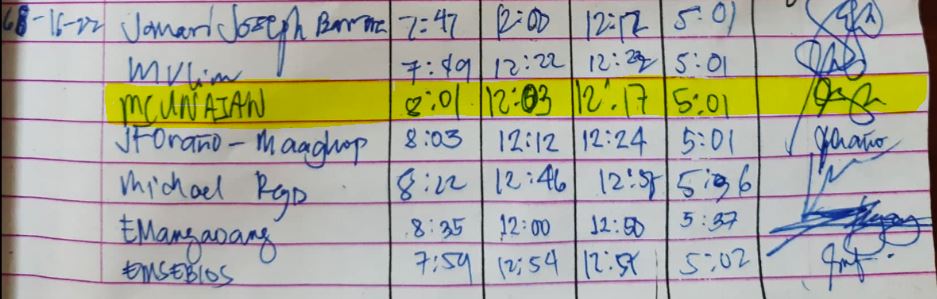 08-16-22 Jomari Joseph 7:47 12:00 12:12 5:01
MVLim 7:49 12:22 12:22 5:01
MCUNAIAN 8:01 12:03 12:17 5:01
JFOraño - Maaghop 8:03 12:12 12:24 5:01
Michael 8:22 12:46 5:36
EMangaoang 8:35 12:00 12:50 5:37
EMSEBIOS 7:59 12:54 5:02